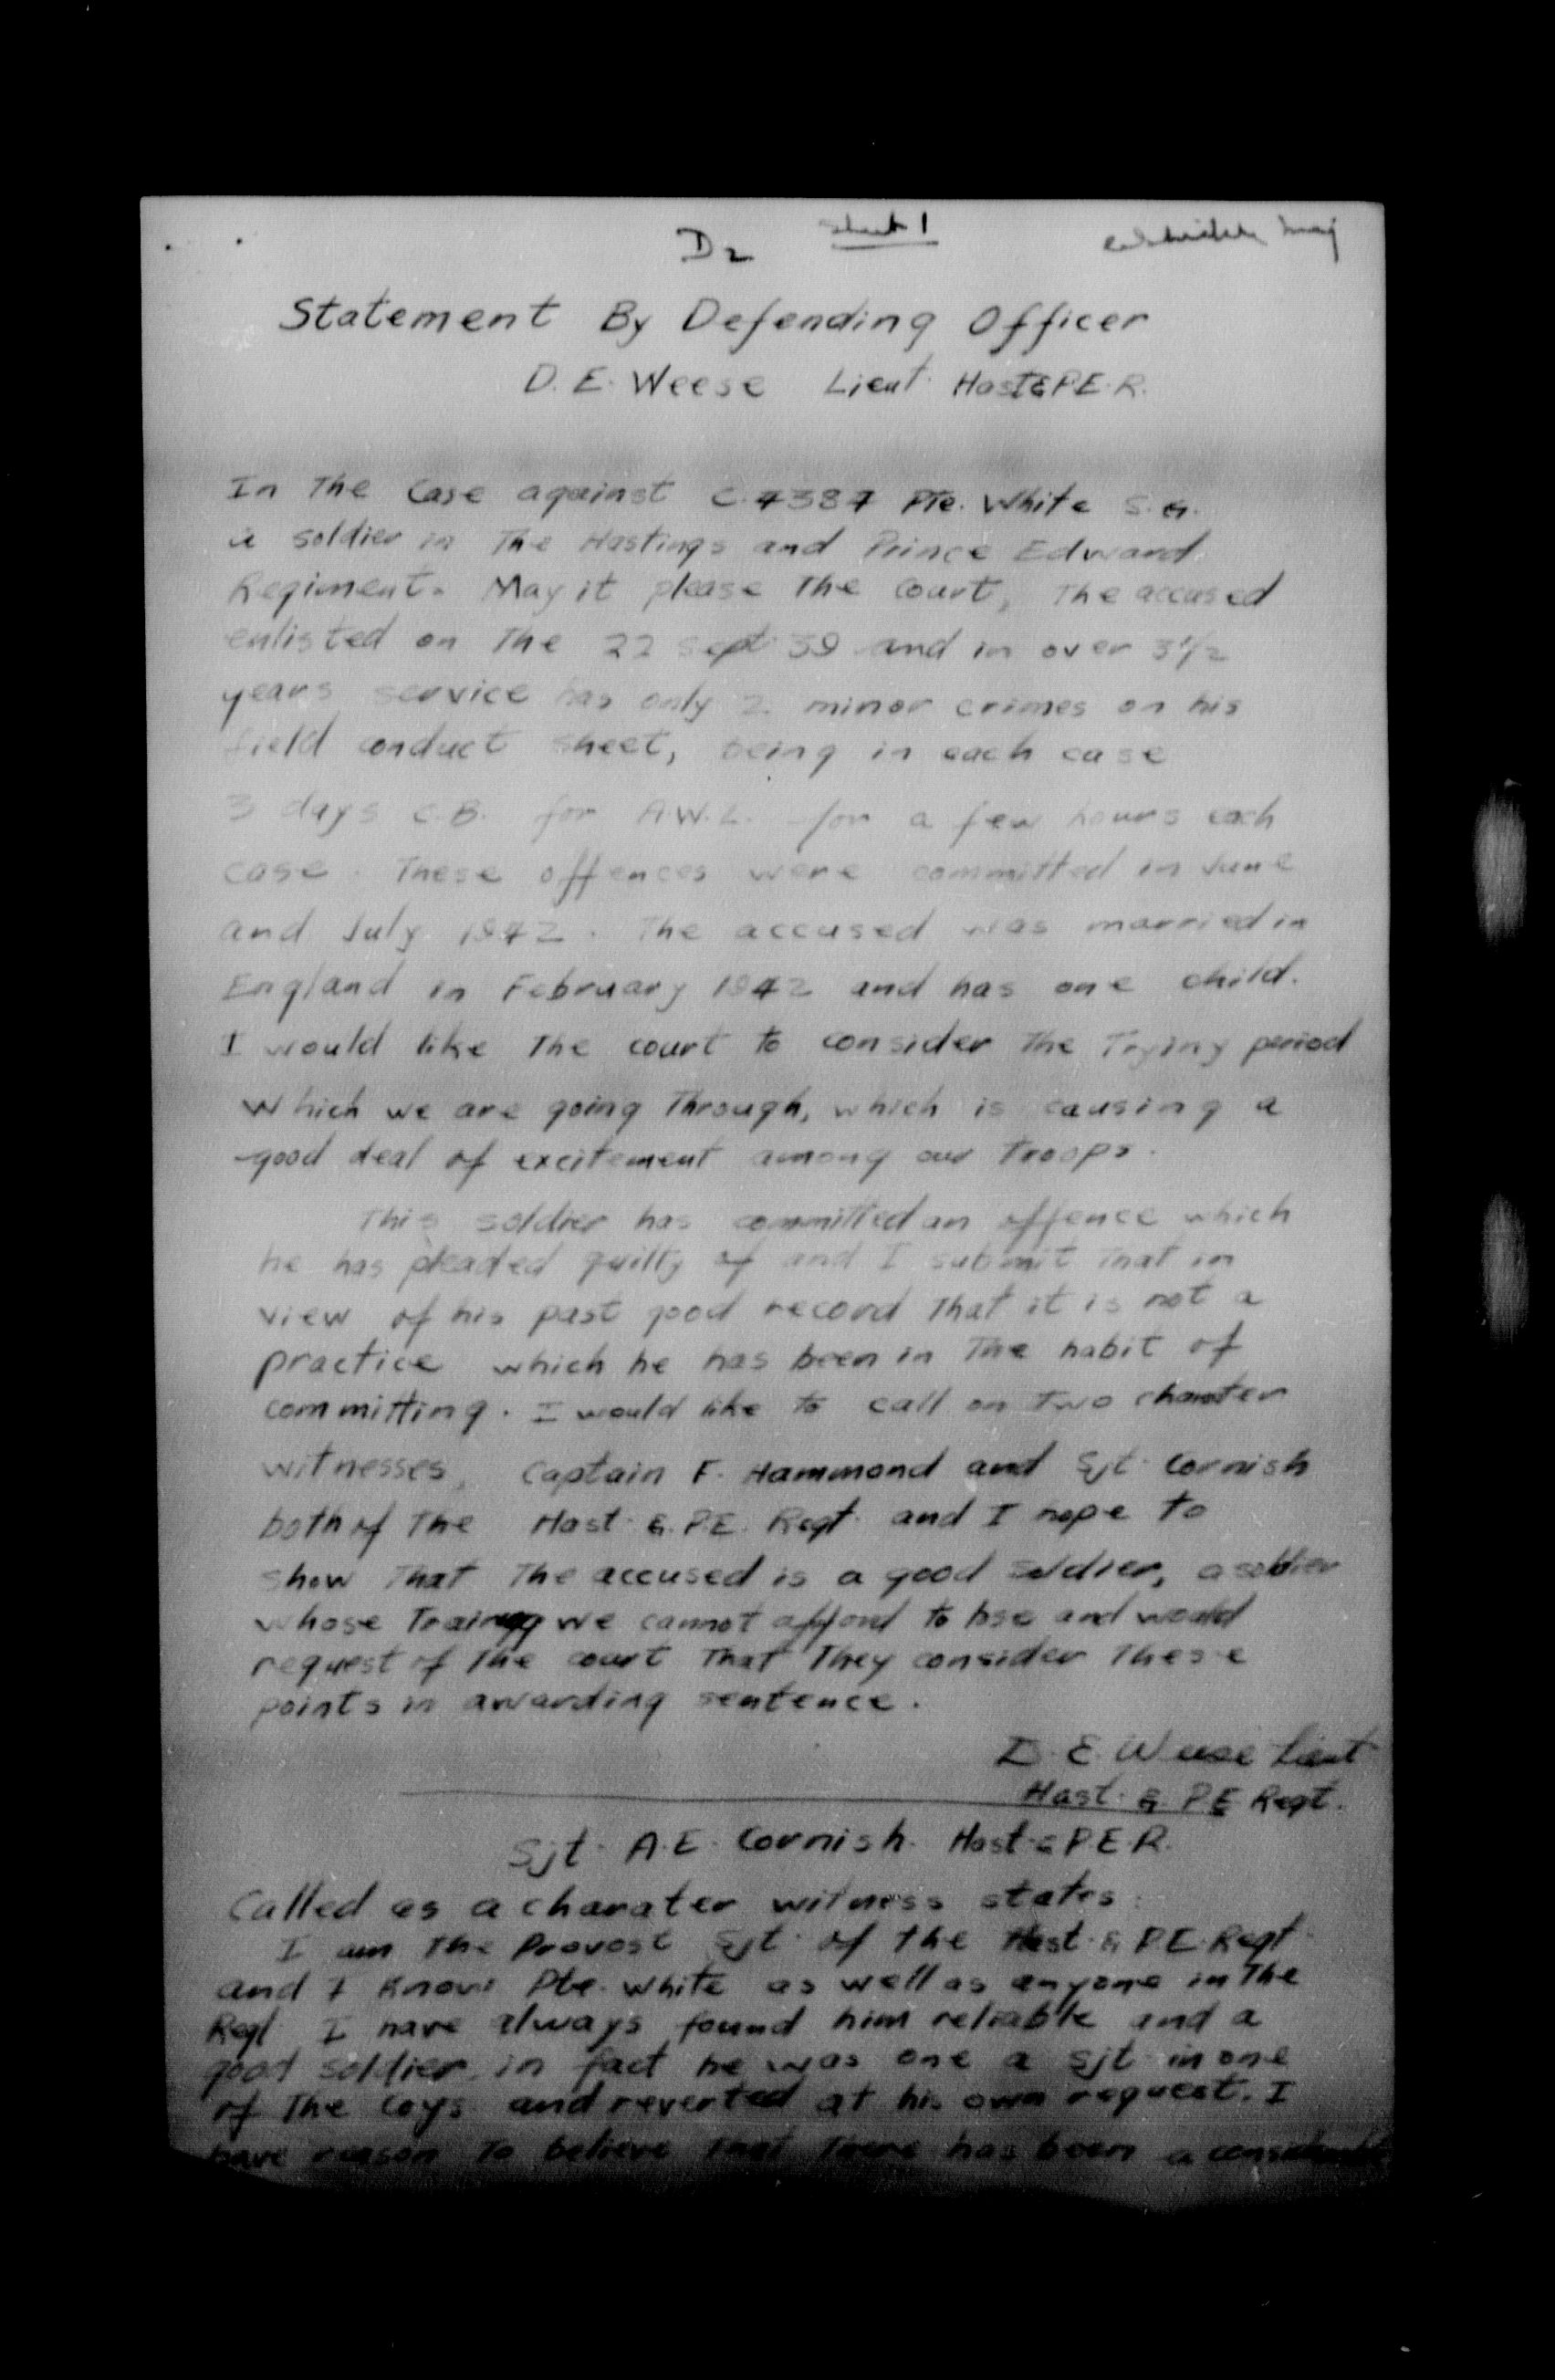 D2 Sheet 1 Maj
Statement By Defending Officer
D. E. Weese Lieut. Hast & P.E.R.
In The Case against C.4384 Pte. White S.G.
a soldier in The Hastings and Prince Edward
Regiment. May it please The Court, The accused
enlisted on The 22 Sept 39 and in over 3 1/2
years service has only 2 minor crimes on his
field conduct sheet, being in each case
3 days C.B. for A.W.L. for a few hours each
case. These offences were committed in June
and July 1942. The accused was married in
England in February 1942 and has one child.
I would like The court to consider The Trying period
which we are going Through, which is causing a
good deal of excitement among our Troops.
This soldier has committed an offence which
he has pleaded guilty of and I submit That in
view of his past good record That it is not a
practice which he has been in The habit of
committing. I would like to call on Two charater
witnesses, Captain F. Hammond and Sjt. Cornish
both of The Hast. & P.E. Regt. and I hope To
show That The accused is a good soldier, a soldier
whose Training we cannot afford to lose and would
request of The court That They consider These
points in awarding sentence.
D. E. Weese Lieut
Hast. & P E Regt.
Sjt. A.E. Cornish. Hast. & P.E.R.
Called as a charater witness states:
I am The Provost Sjt. of the Hast. & P.E. Regt.
and I know Pte. White as well as anyone in The
Regt I have always found him reliable and a
good soldier, in fact he was one a Sjt in one
of The Coys and reverted at his own request. I
have reason To believe That There has been a